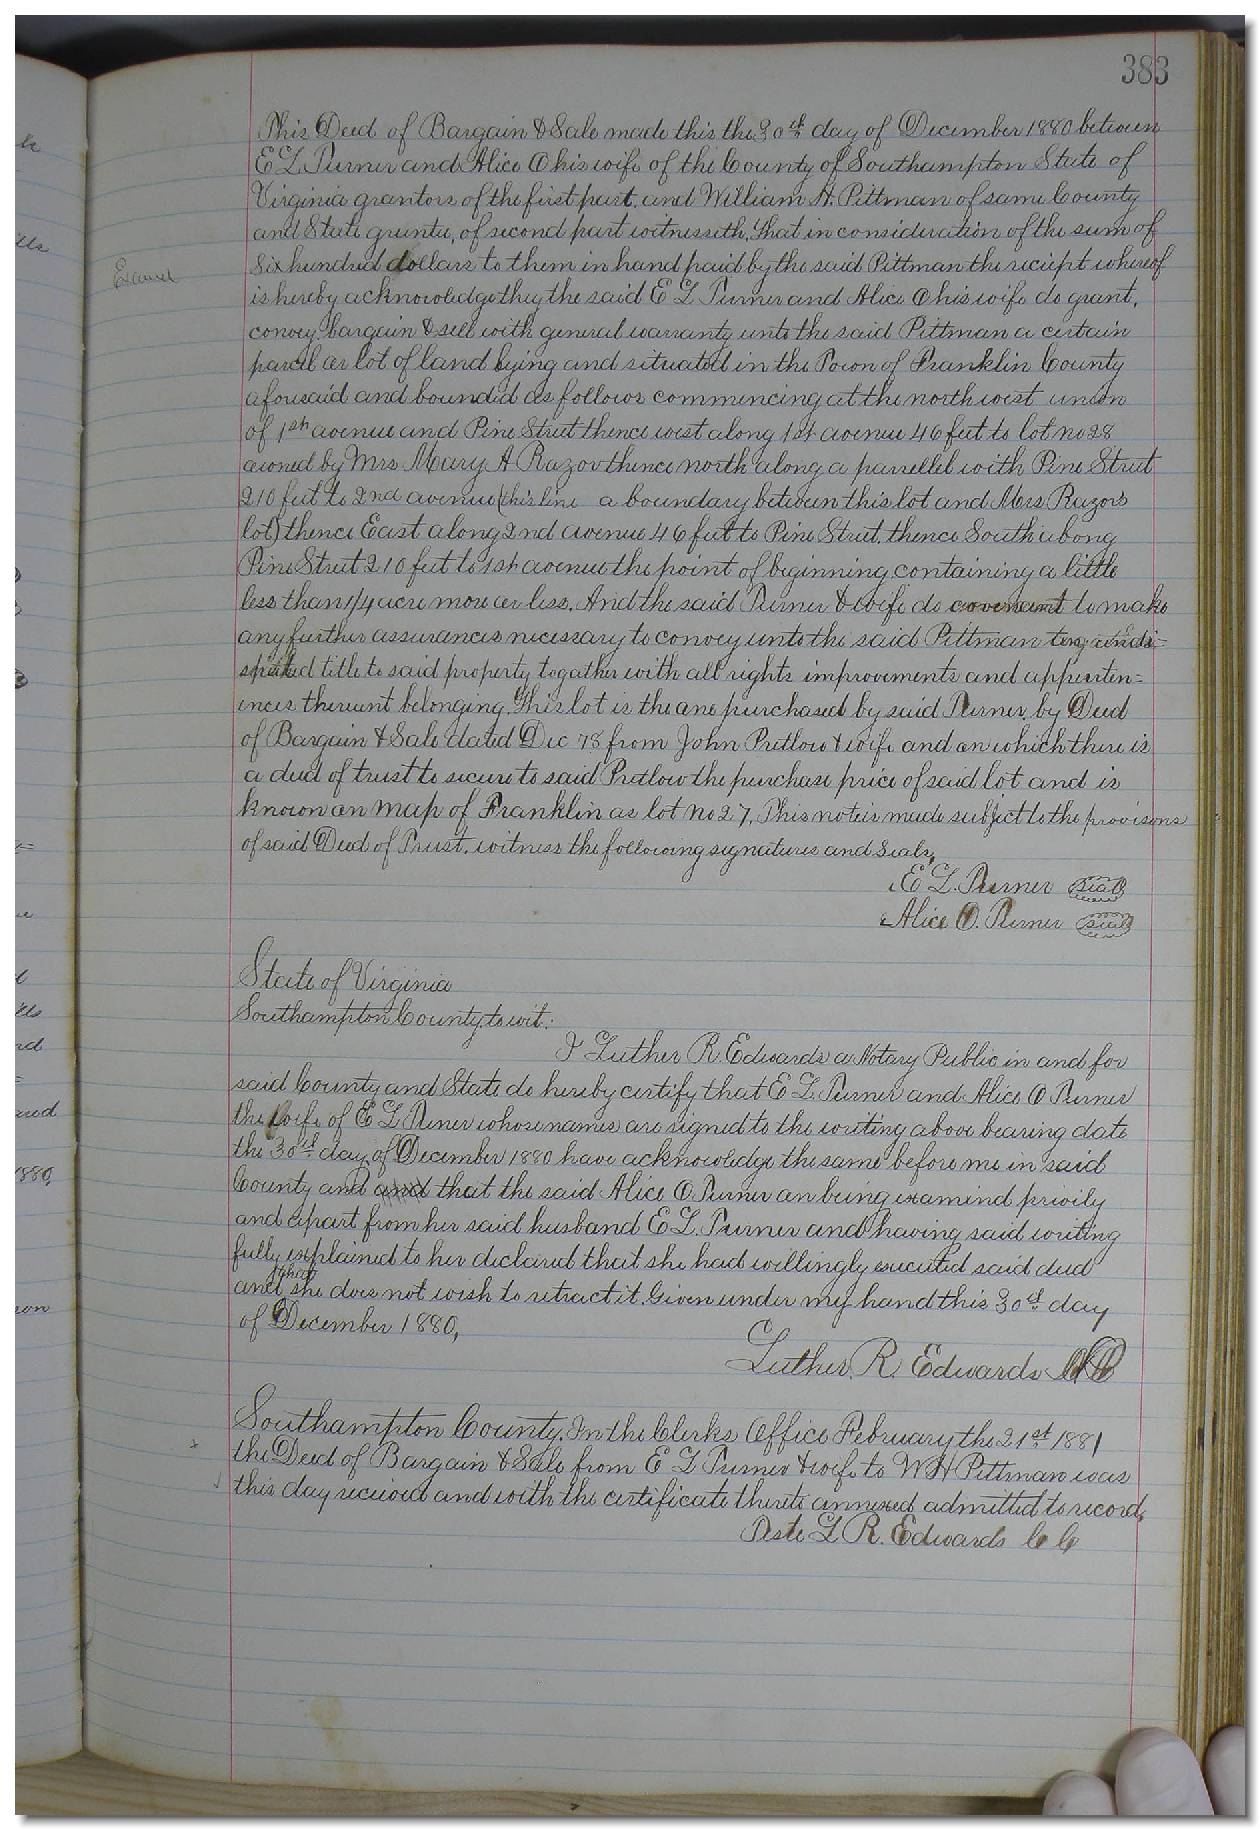 383
This Deed of Bargain & Sale made this the 30th day of December 1880 between
E L Turner and Alice O his wife of the County of Southampton State of
Virginia grantors of the first part, and William H. Pittman of same County
and State grante, of second part witnesseth, That in consideration of the sum of
Six hundred dollars to them in hand paid by the said Pittman the reciept whereof
is hereby acknowledge they the said E L Turner and Alice O his wife do grant,
convey, bargain & sell with general warranty unto the said Pittman a certain
parcel or lot of land lying and situated in the Town of Franklin County
aforesaid and bounded as follows commencing at the north west union
of 1st avenue and Pine Street thence west along 1st avenue 46 feet to lot no 28
owned by Mrs Mary A Razor thence north along a parrellel with Pine Street
210 feet to 2nd avenue (this line a boundary between this lot and Mrs Razors
lot) thence East along 2nd avenue 46 feet to Pine Street, thence South along
Pine Street 210 feet to 1st avenue the point of beginning, containing a little
less than 1/4 acre more or less. And the said Turner & wife do covenant to make
any further assurances necessary to convey unto the said Pittman undi=
sputed title to said property together with all rights improvements and appurten=
ences thereunt belonging. This lot is the one purchased by said Turner, by Deed
of Bargain & Sale dated Dec 78 from John Pretlow & wife and on which there is
a deed of trust to secure to said Pretlow the purchase price of said lot and is
known on map of Franklin as lot no 27, This note is made subject to the provisons
of said Deed of Trust. witness the following signatures and Seals,
E L. Turner Seal
Alice O. Turner Seal
State of Virginia
Southampton County, to wit:
I Luther R. Edwards a Notary Public in and for
said County and State do hereby certify that E L Turner and Alice O Turner
the wife of E L Turner whose names are signed to the writing above bearing date
the 30th day of December 1880 have acknowledge the same before me in said
County and and that the said Alice O. Turner on being examind privily
and apart from her said husband E L. Turner and having said writing
fully explained to her declared that she had willingly executed said deed
and that she does not wish to retract it. Given under my hand this 30th day
of December 1880,
Luther. R. Edwards NP
Southampton County. In the Clerks Office February the 21st 1881
the Deed of Bargain & Sale from E L Turner & wife to W H Pittman was
this day received and with the certificate thereto annexed admitted to record,
Teste L R. Edwards C C